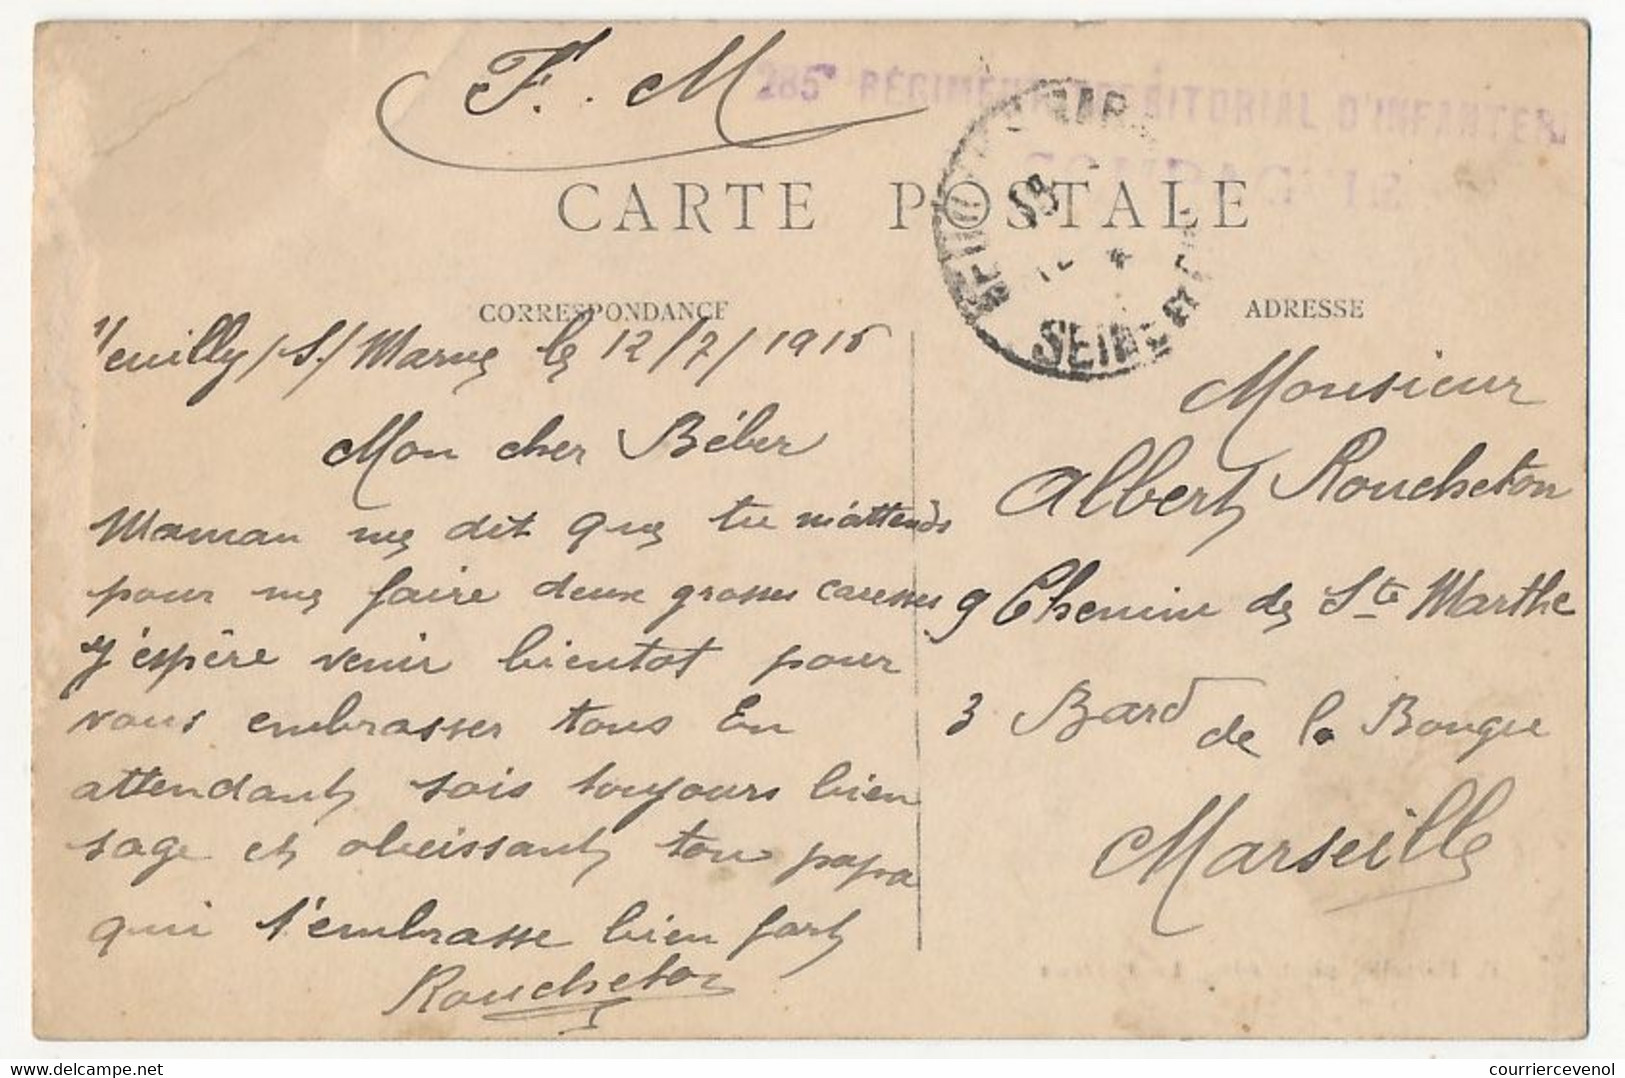 F. M
285e RÉGIMENT TERRITORIAL D'INFANTERIE
CARTE POSTALE
SEINE ET
CORRESPONDANCE
ADRESSE
Neuilly /S/ Marne le 12/7/1915
Mon cher Béber
Maman me dit que tu m'attends
pour me faire deux grosses caresses
J'espère venir bientot pour
vous embrasser tous En
attendant sois toujours bien
sage et obeissant ton papa
qui t'embrasse bien fort
Roucheton
Monsieur
Albert Roucheton
9 Chemin de Ste Marthe
3 Bard de la Bougie
Marseille
courriercevenol